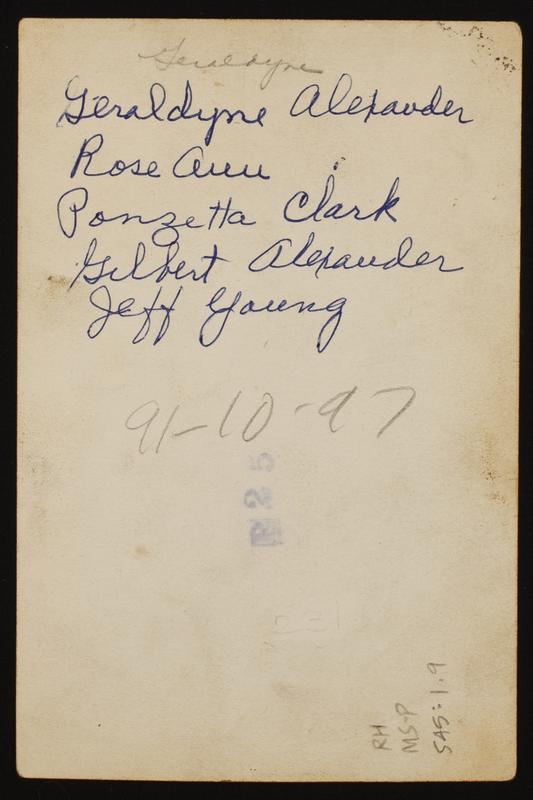 Geraldyne
Geraldyne Alexander
Rose Ann
Ponzetta Clark
Gilbert Alexander
Jeff Young
91-10-97
RH
MS-P
545:1.9